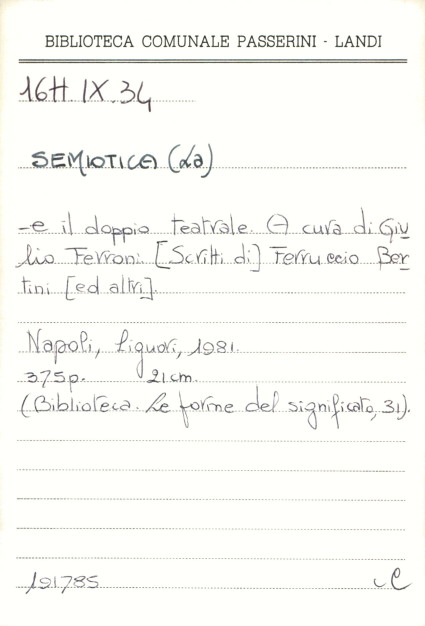 BIBLIOTECA COMUNALE PASSERINI - LANDI
16H.IX.34
SEMIOTICA (La)
-e il doppio teatrale. A cura di Giu
lio Ferroni. [Scritti di] Ferruccio Ber
tini [ed altri].
Napoli, Liguori, 1981.
375p. 21cm.
(Biblioteca. Le forme del significato, 31).
191785